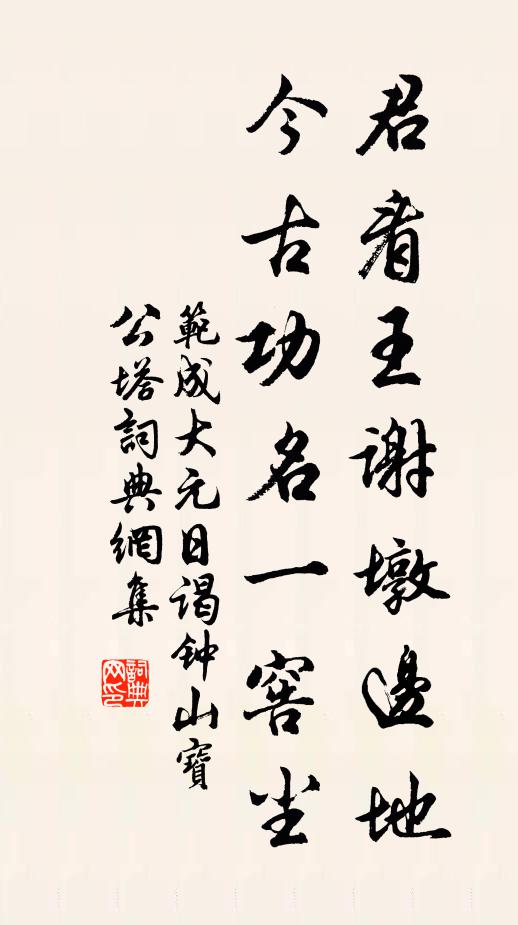 君看王謝墩邊地
今古功名一窖尘
範成大元日谒钟山寶
公塔詞典網集
詞典网印